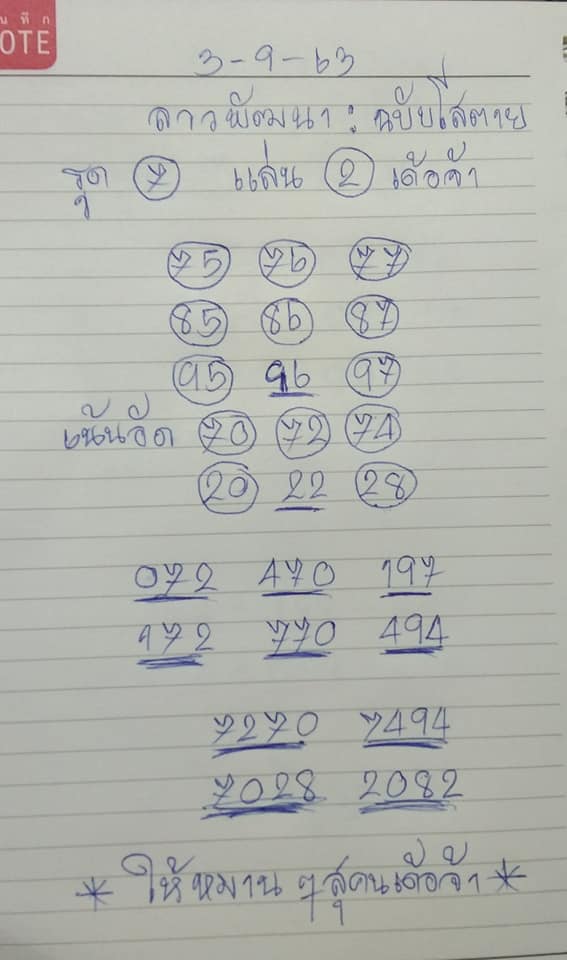 นทึก
OTE
3-9-63
ลาวพัฒนา : ฉบับไส่ตาย
รูด 7 แล่น 2 เด้อจ้า
75 76 77
85 86 87
95 96 97
เน้นอัด 70 72 74
20 22 28
072 470 197
172 770 494
7270 7494
7028 2082
* ให้หมาน ๆ สุคนเด้อจ้า *